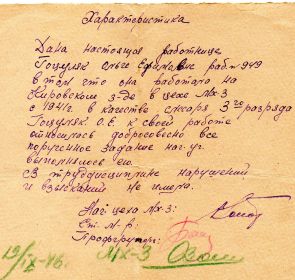 Характеристика
Дана настоящая работнице
Гошуляк Ольге Ефимовне раб. № 949
в том что она работала на
Кировского з-де в цехе Мх-3
с 1941г. в качестве слесаря 3го разряда
Гошуляк О.Е. к своей работе
относилась добросовесно все
порученное задание
выполнялось ею.
В труддисциплине нарушений
и взысканий не имела.
Нач. цеха Мх-3:
Ст. М-р:
Профгрупорг:
МХ-3
19/IX-46.